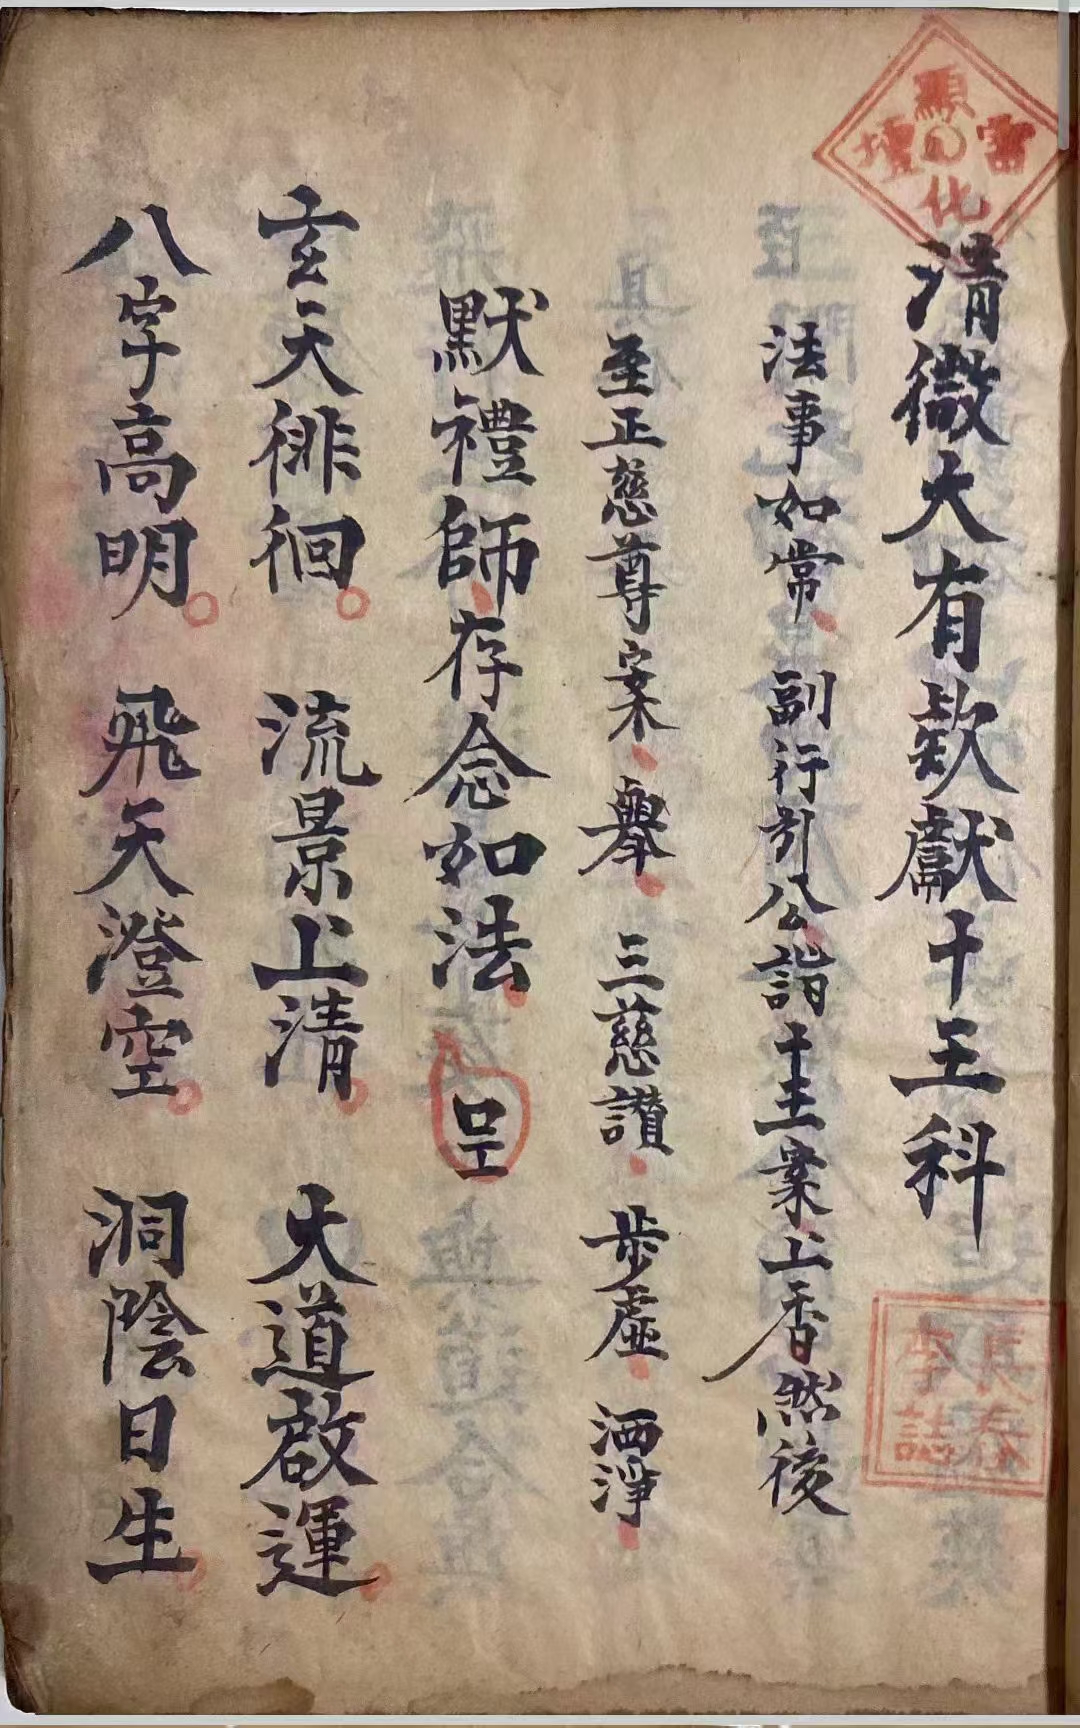 清微大有欵獻十王科
法事如常 副行引公詣十王案上香然後
至正慈尊案 舉 三慈讚 步虛 洒淨
默禮師存念如法 呈
玄天徘徊 流景上清 大道啟運
八字高明 飛天澄空 洞陰日生
顯化雷壇